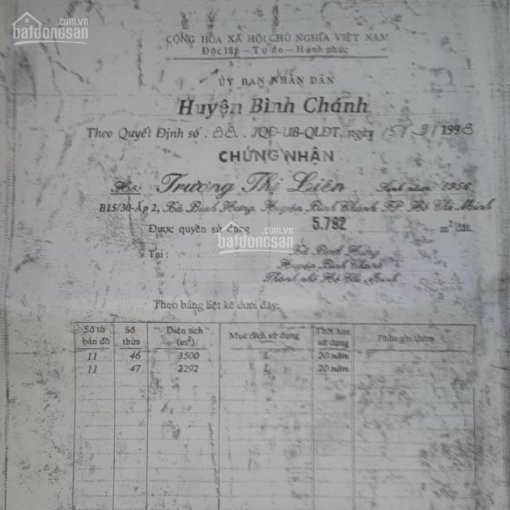 batdongsan
.com.vn
CỘNG HÒA XÃ HỘI CHỦ NGHĨA VIỆT NAM
Độc lập – Tự do – Hạnh phúc
ỦY BAN NHÂN DÂN
Huyện Bình Chánh
Theo Quyết Định số 88 /QĐ-UB-QLĐT, ngày 15/ 9/ 1998
CHỨNG NHẬN
Trương Thị Liên Sinh năm 1956
B15/30-Ấp 2, Xã Bình Hưng, Huyện Bình Chánh TP. Hồ Chí Minh
Được quyền sử dụng 5.792 m² đất.
batdongsan
.com.vn
Tại : Xã Bình Hưng
Huyện Bình Chánh
Thành phố Hồ Chí Minh
Theo bảng liệt kê dưới đây:
Số tờ bản đồ Số thửa Diện tích (m²) Mục đích sử dụng Thời hạn sử dụng Phần ghi thêm
11 46 3500 L 20 năm
11 47 2292 L 20 năm
batdongsan
.com.vn